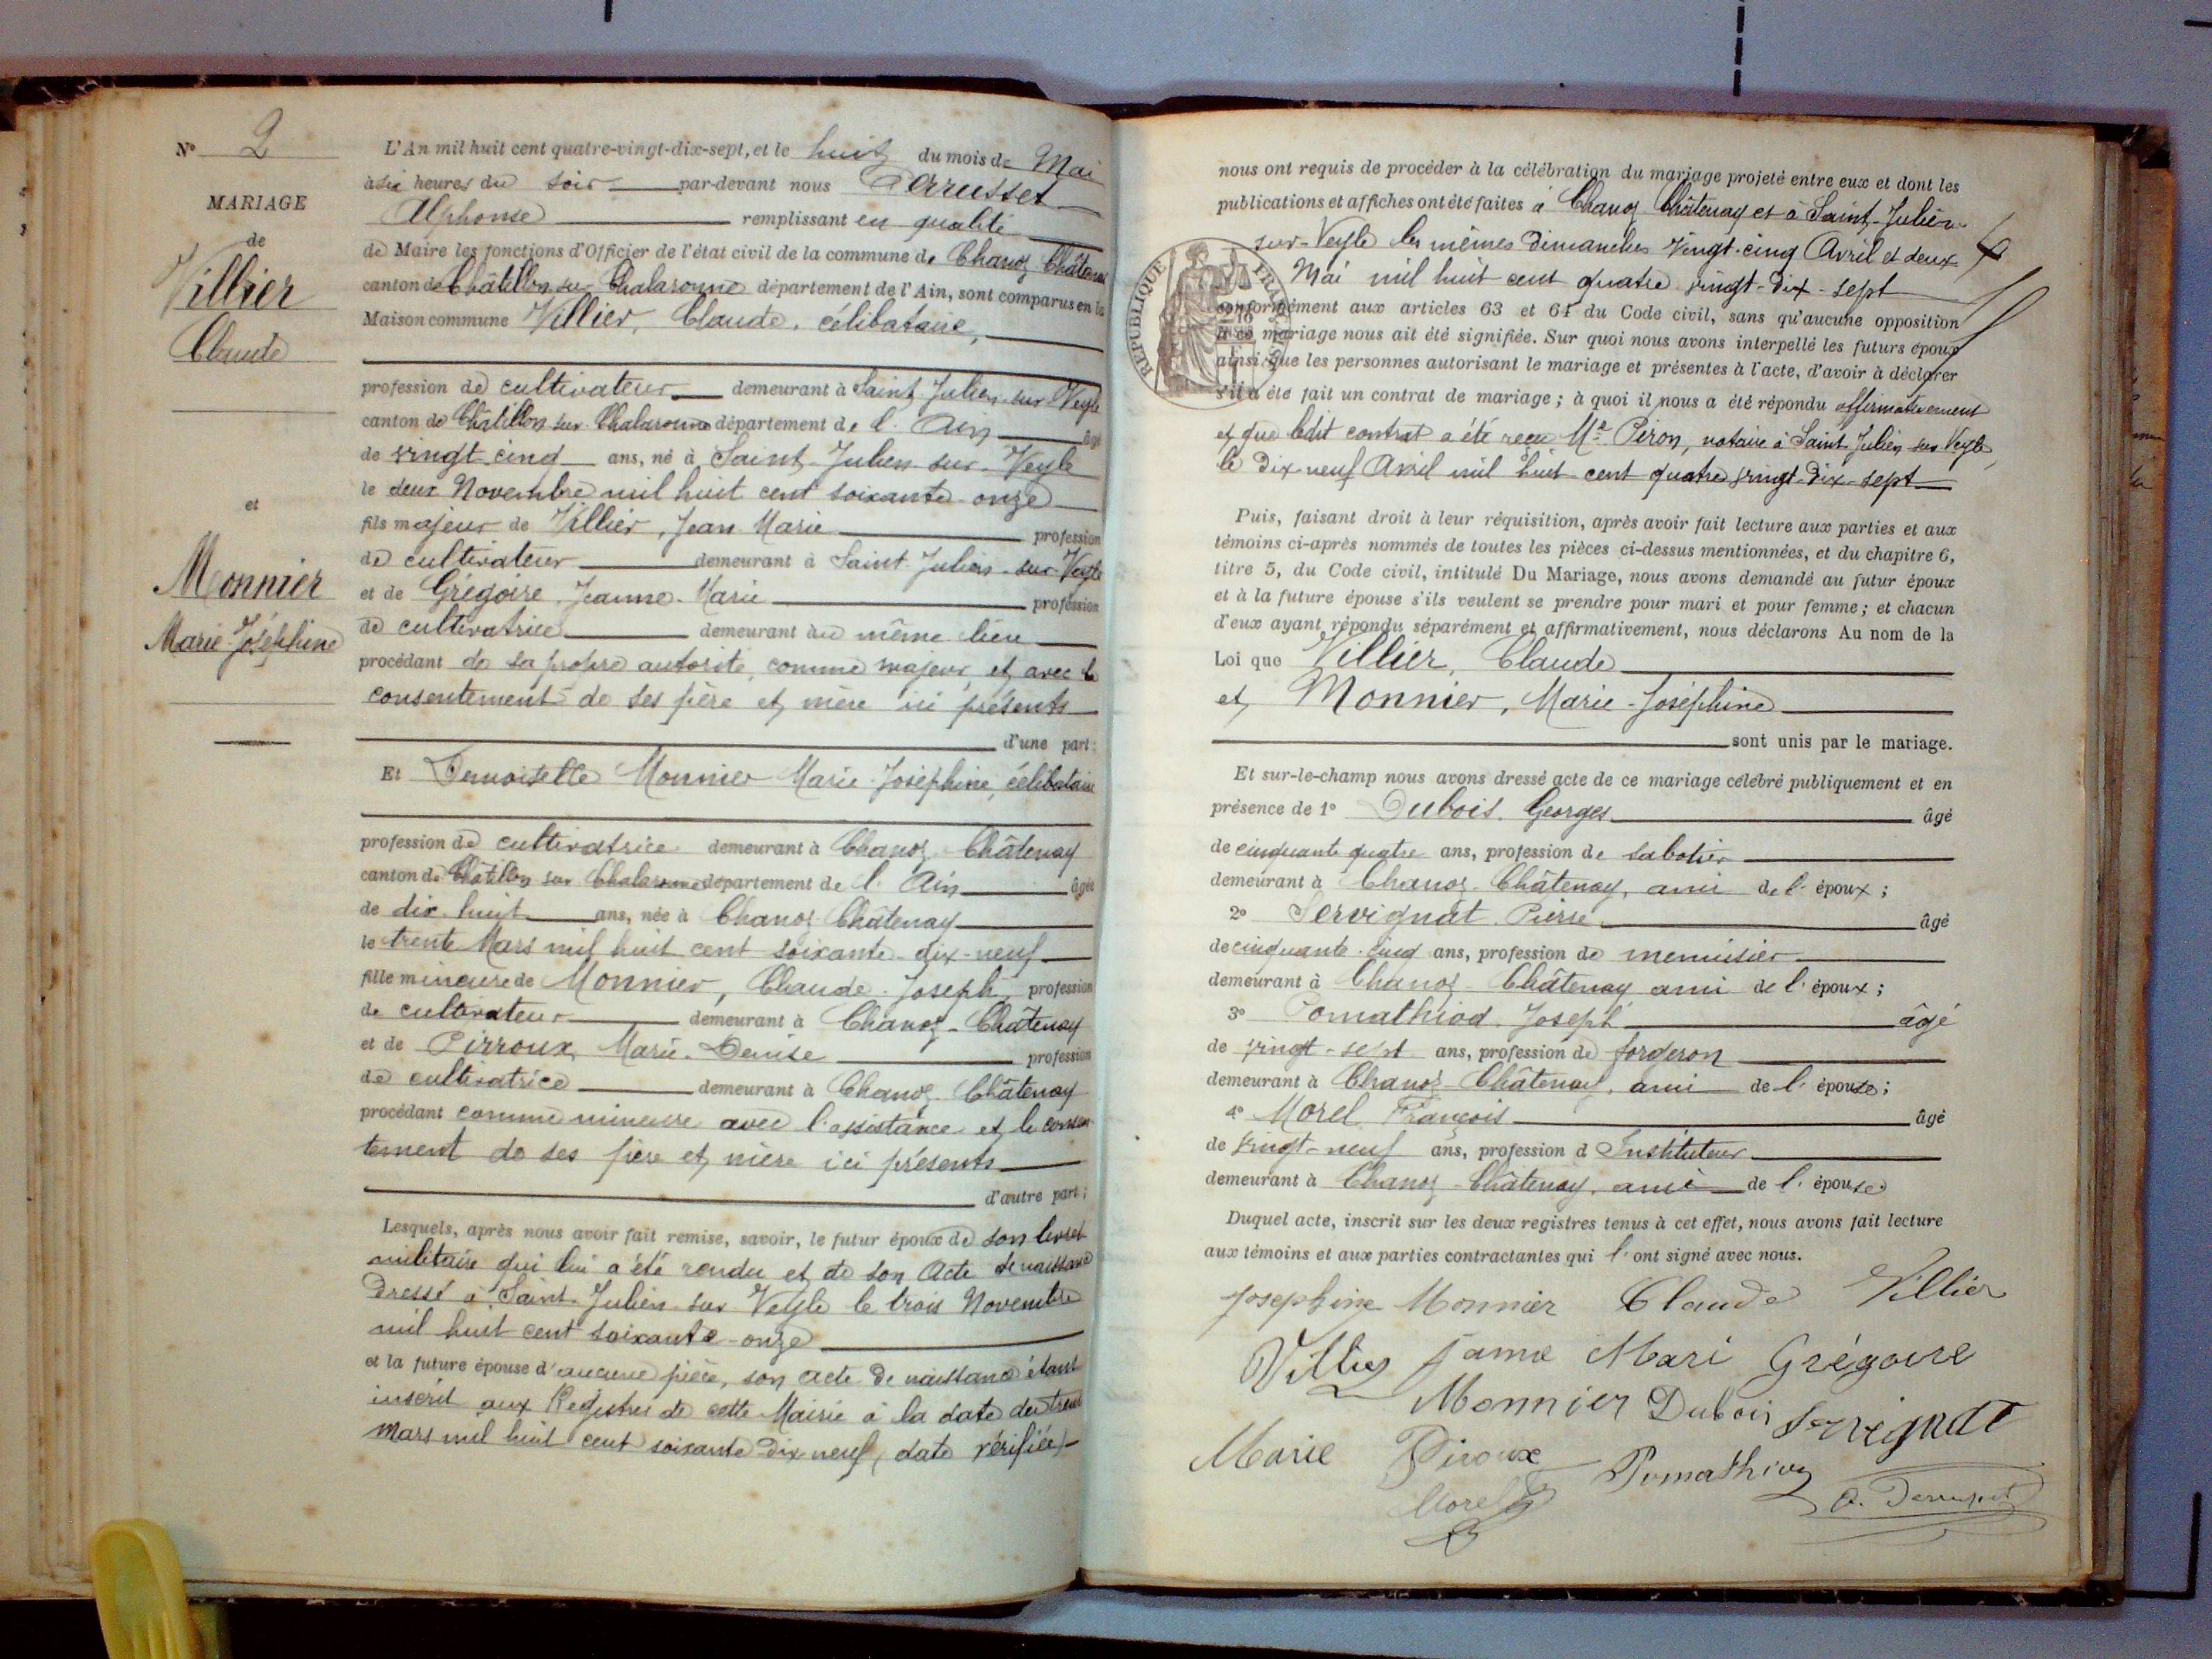 N° 2
MARIAGE
de
Villier
Claude
et
Monnier
Marie Joséphine
L'An mil huit cent quatre-vingt-dix-sept, et le huit du mois de Mai
à six heures du soir par-devant nous Derrusset
Alphonse remplissant en qualité
de Maire les fonctions d'Officier de l'état civil de la commune de Chanoz Châtenay
canton de Châtillon sur Chalaronne département de l'Ain, sont comparus en la
Maison commune Villier, Claude, célibataire,
profession de cultivateur demeurant à Saint Julien sur Veyle
canton de Châtillon sur Chalaronne département de l'Ain âgé
de vingt cinq ans, né à Saint Julien sur Veyle
le deux Novembre mil huit cent soixante-onze
fils majeur de Villier, Jean Marie profession
de cultivateur demeurant à Saint Julien sur Veyle
et de Grégoire Jeanne-Marie profession
de cultivatrice demeurant au même lieu
procédant de sa propre autorité, comme majeur, et avec le
consentement de ses père et mère ici présents
d'une part;
Et Demoiselle Monnier Marie Joséphine, célibataire
profession de cultivatrice demeurant à Chanoz Châtenay
canton de Châtillon sur Chalaronne département de l'Ain âgée
de dix huit ans, née à Chanoz Châtenay
le trente Mars mil huit cent soixante-dix-neuf
fille mineure de Monnier, Claude-Joseph, profession
de cultivateur demeurant à Chanoz-Châtenay
et de Pirroux, Marie-Denise profession
de cultivatrice demeurant à Chanoz-Châtenay
procédant comme mineure avec l'assistance et le consen-
tement de ses père et mère ici présents
d'autre part;
Lesquels, après nous avoir fait remise, savoir, le futur époux de son livret
militaire qui lui a été rendu et de son Acte de naissance
Dressé à Saint-Julien-sur Veyle le trois Novembre
mil huit cent soixante-onze
et la future épouse d'aucune pièce, son acte de naissance étant
inscrit aux Registres de cette Mairie à la date du trente
Mars mil huit cent soixante dix neuf, (date vérifiée)-
nous ont requis de procéder à la célébration du mariage projeté entre eux et dont les
publications et affiches ont été faites à Chanoz Châtenay et à Saint-Julien
sur-Veyle les mêmes Dimanches Vingt-cinq Avril et deux
Mai mil huit cent quatre vingt-dix-sept
REPUBLIQUE FRANÇAISE
conformément aux articles 63 et 64 du Code civil, sans qu'aucune opposition
à ce mariage nous ait été signifiée. Sur quoi nous avons interpellé les futurs époux
ainsi que les personnes autorisant le mariage et présentes à l'acte, d'avoir à déclarer
s'il a été fait un contrat de mariage; à quoi il nous a été répondu affirmativement
et que ledit contrat a été reçu Me Péron, notaire à Saint Julien sur Veyle,
le Dix-neuf Avril mil huit cent quatre vingt-dix-sept
Puis, faisant droit à leur réquisition, après avoir fait lecture aux parties et aux
témoins ci-après nommés de toutes les pièces ci-dessus mentionnées, et du chapitre 6,
titre 5, du Code civil, intitulé Du Mariage, nous avons demandé au futur époux
et à la future épouse s'ils veulent se prendre pour mari et pour femme; et chacun
d'eux ayant répondu séparément et affirmativement, nous déclarons Au nom de la
Loi que Villier, Claude
et Monnier, Marie-Joséphine
sont unis par le mariage.
Et sur-le-champ nous avons dressé acte de ce mariage célébré publiquement et en
présence de 1° Dubois. Georges âgé
de cinquante quatre ans, profession de sabotier
demeurant à Chanoz-Châtenay, ami de l'époux;
2° Servignat. Pierre âgé
de cinquante-cinq ans, profession de menuisier
demeurant à Chanoz-Châtenay ami de l'époux;
3° Pomathiod. Joseph âgé
de vingt-sept ans, profession de forgeron
demeurant à Chanoz-Châtenay, ami de l'épouse;
4° Morel François âgé
de vingt-neuf ans, profession d Instituteur
demeurant à Chanoz-Châtenay, ami de l'épouse
Duquel acte, inscrit sur les deux registres tenus à cet effet, nous avons fait lecture
aux témoins et aux parties contractantes qui l'ont signé avec nous.
Josephine Monnier Claude Villier
Villier Jame Mari Grégoire
Monnier Dubois Servignat
Marie Piroux Pomathiod
Morel A. Derrusset